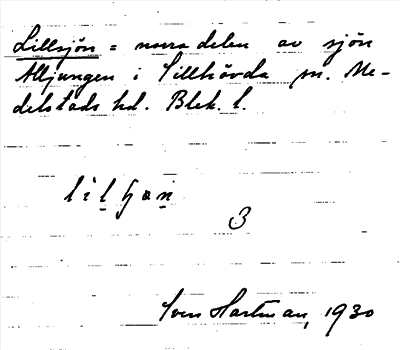 Lillsjön = norra delen av sjön
Alljungen i Sillhövda sn. Me-
delstads hd. Blek. l.
3
Sven Hartman, 1930